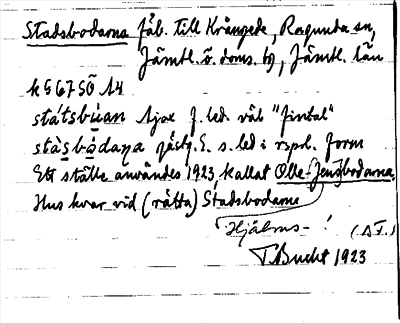 Stadsbodarna fäb. till Krångede, Ragunda sn,
Jämtl. ö. doms. tg, Jämtl. län
k667SÖ A4
státsbùan Ajax f. led. väl "finbal"
stàsbòdaṇa gästg. E. s. led i rspr. form
Ett ställe användes 1923, kallat Olle-Jensbodarna.
Hus kvar vid (rätta) Stadsbodarna
Hjälms- !
T. Bucht 1923